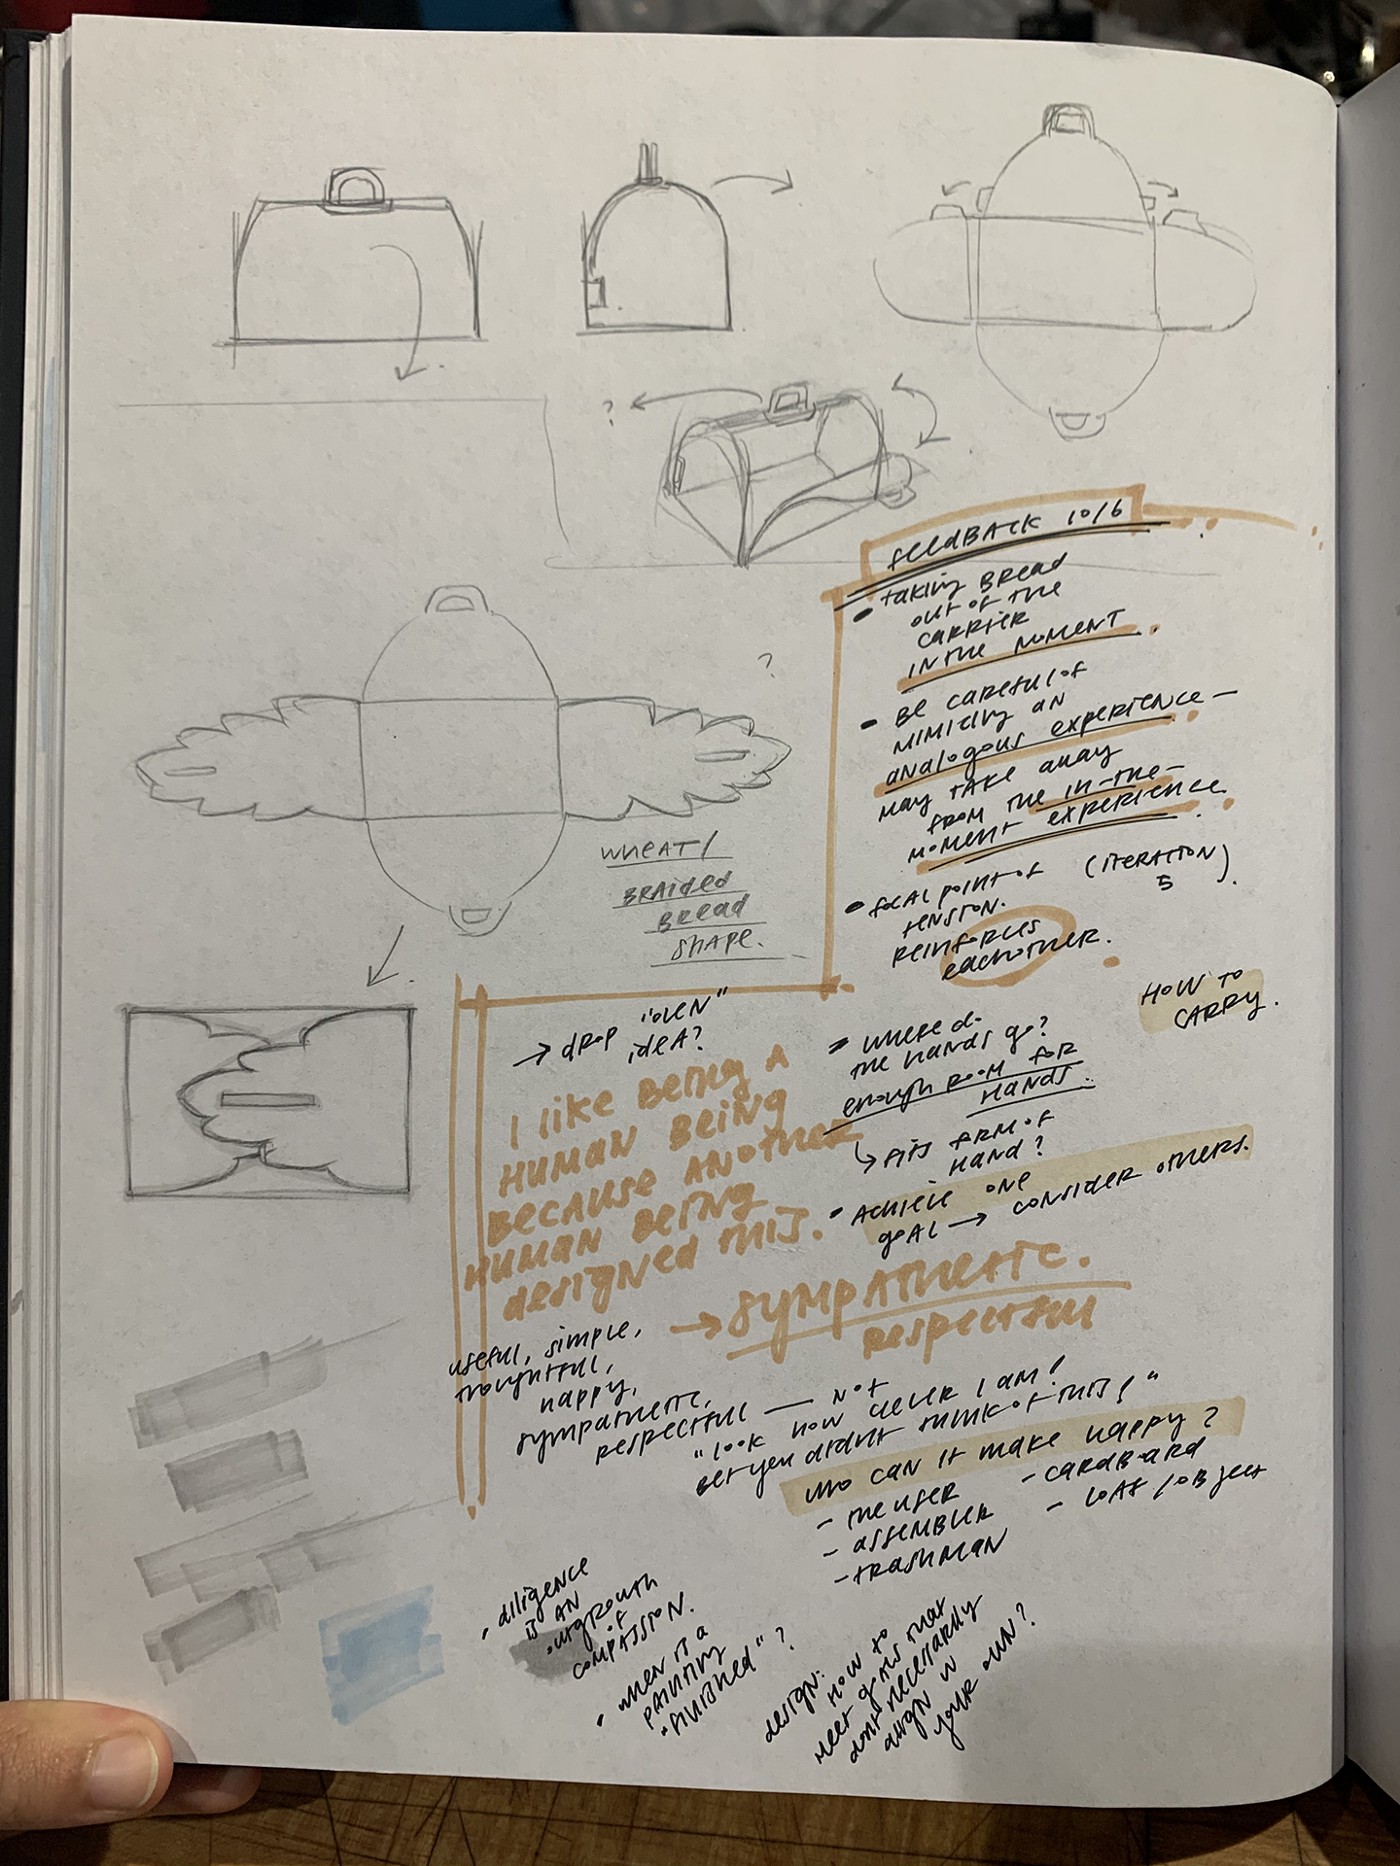 ?
feedBACK 10/6
• taking BREAD
out of the
CARRIER
IN the MOMENT.
• Be careful of
MIMICING AN
analogous experience —
MAY TAKE away
from the in-the-
moment experience.
• focal point of (ITERATION 5).
tension.
Reinforces
eachother.
?
WHEAT/
BRAIDED
BREAD
SHAPE.
HOW TO
CARRY.
→ drop "OVEN"
idea?
I like Being A
HUMAN BEING
BECAUSE ANOTHER
HUMAN BEING
designed this.
• where do
the hands go?
enough room for
HANDS.
↳ fits form of
HAND?
• Achieve one
goal → consider others.
→ sympathetic.
respectful
useful, simple,
thoughtful,
happy,
sympathetic,
respectful — not
"look how clever I am!
Bet you didnt think of this!"
who can it make happy?
- the user
- assembler
- trashman
- cardboard
- loaf/object
• diligence
is an
outgrowth
of
compassion.
• when is a
painting
"finished"?
design: how to
meet goals that
dont necessarily
align w
your own?